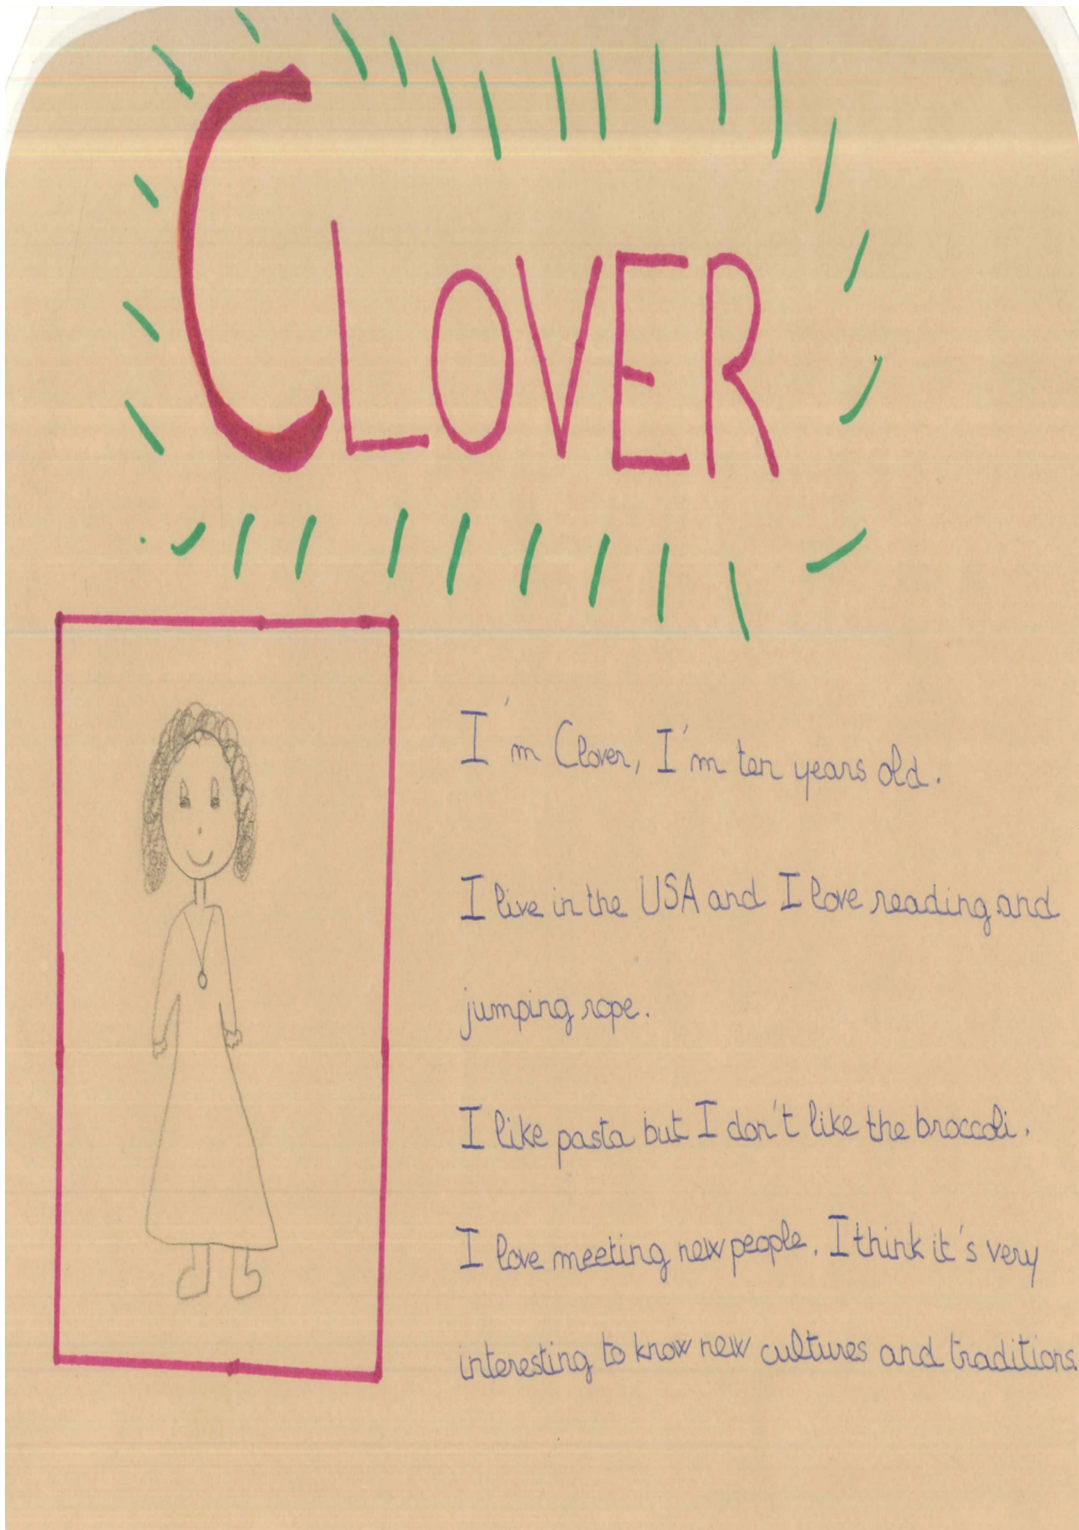 CLOVER
I'm Clover, I'm ten years old.
I live in the USA and I love reading and
jumping rope.
I like pasta but I don't like the broccoli.
I love meeting new people. I think it's very
interesting to know new cultures and traditions.